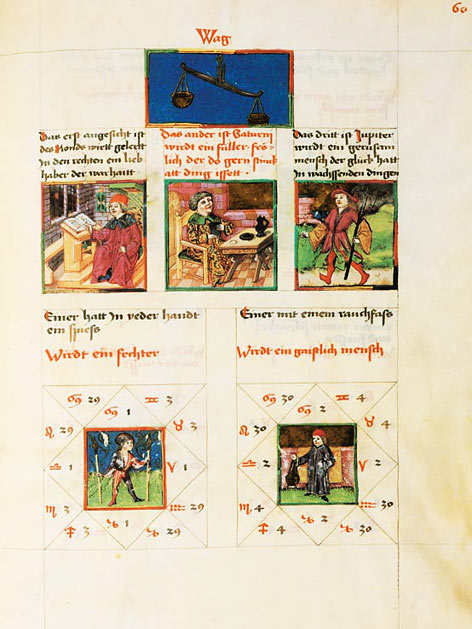 60
Wag
Das erst angesicht ist
des Monds wirtt gelertt
In den rechten ein lieb
haber der warhaitt
Das ander ist Saturn
wirdt ein fuller frö-
lich der do gern
ding issett.
Das dritt ist Jupiter
wirdt ein gerusam
mensch der glück hatt
In wachssenden dingen
Einer hatt In yeder handt
ein spiess
Wirdt ein fechter
Einer mit einem rauchfass
Wirdt ein gaistlich mensch
♋ 29 ♊ 3
♋ 1
♌ 29
♎ 1 ♈ 1
♏ 3 ♒ 29
♑ 1
♋ 30 ♊ 4
♋ 2
♌ 30 ♉ 4
♎ 2 ♈ 2
♏ 4 ♒ 30
♑ 2
♐ 4 ♑ 30